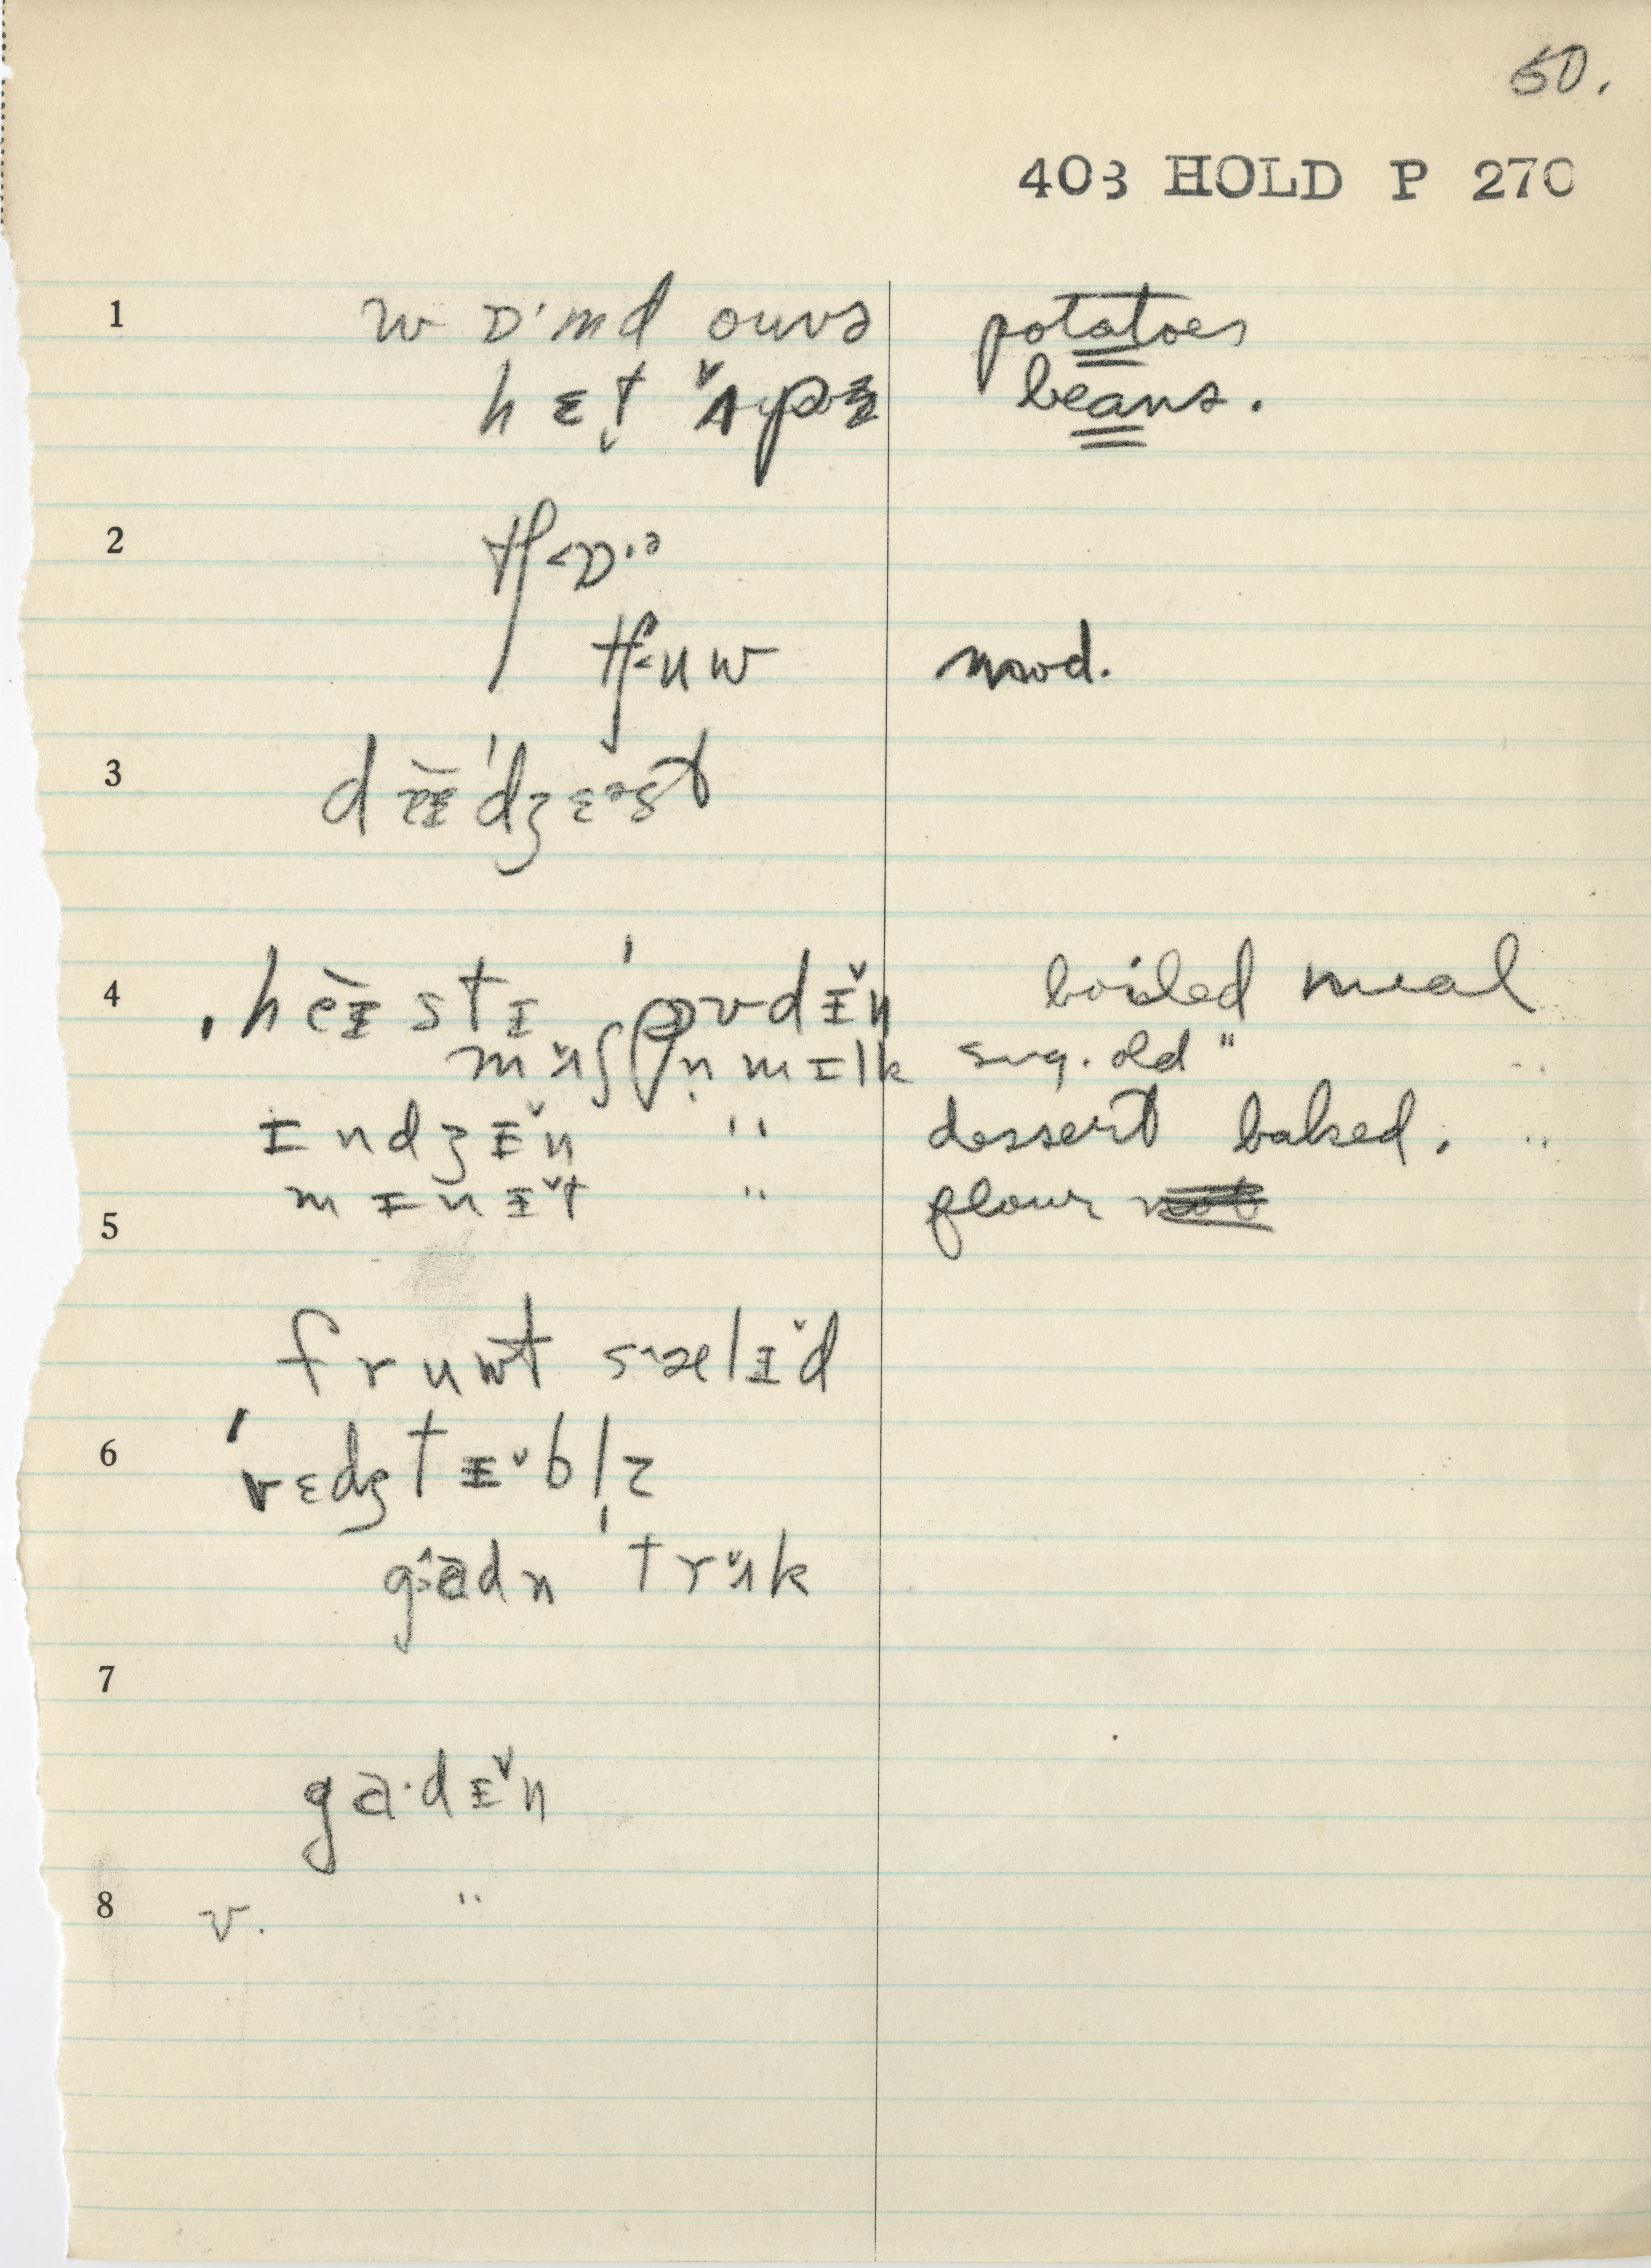 50.
403 HOLD P 270
1 wɒ·md ouvə potatoes
hɛt ʌ̆pə beans.
2 tʃ<ɒ·ə
tʃ<uw mod.
3 deɪˈdʒɛəst
4 heɪstɪ ˈpʊdɪ̆ŋ boiled meal
mʌ̆ʃ n̩ mɪlk sug. old "
ɪndʒɪ̆n " dessert baked. "
mɪnɪ̆t " flour
5
fruwt sælɪ̆d
6 ˈvɛdʒtɪ̆blz
gadn ˈtrʌ̆k
7
ga·dɪ̆n
8 v. "